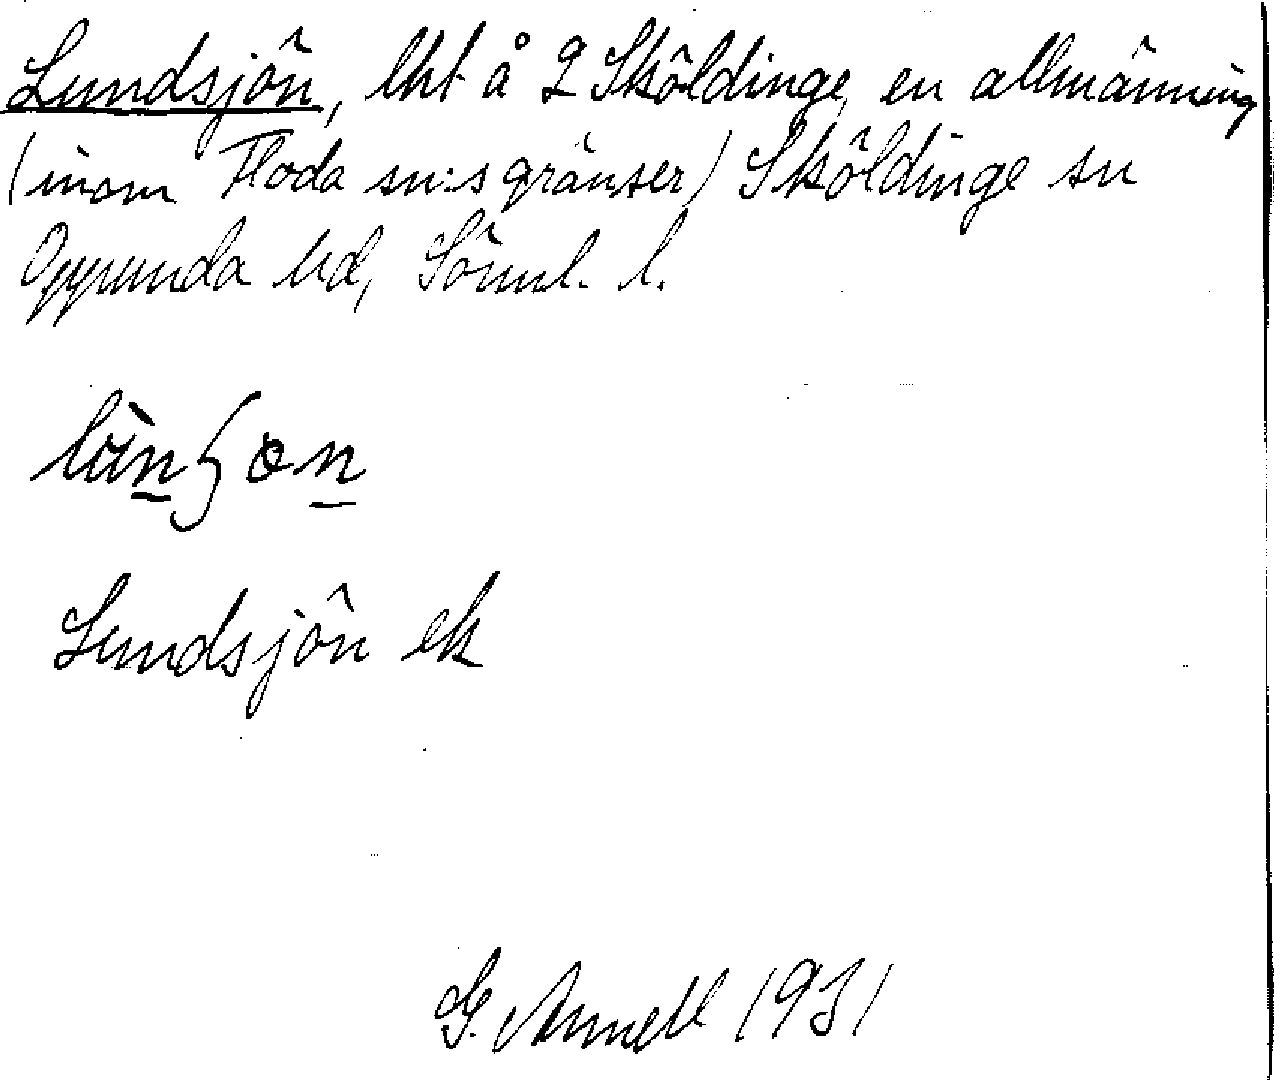 Lundsjön, lht å 2 Sköldinge en allmänning
(inom Floda sn:s gränser) Sköldinge sn
Oppunda hd, Sörml. l.
Lundsjön ek
G. Annell 1931